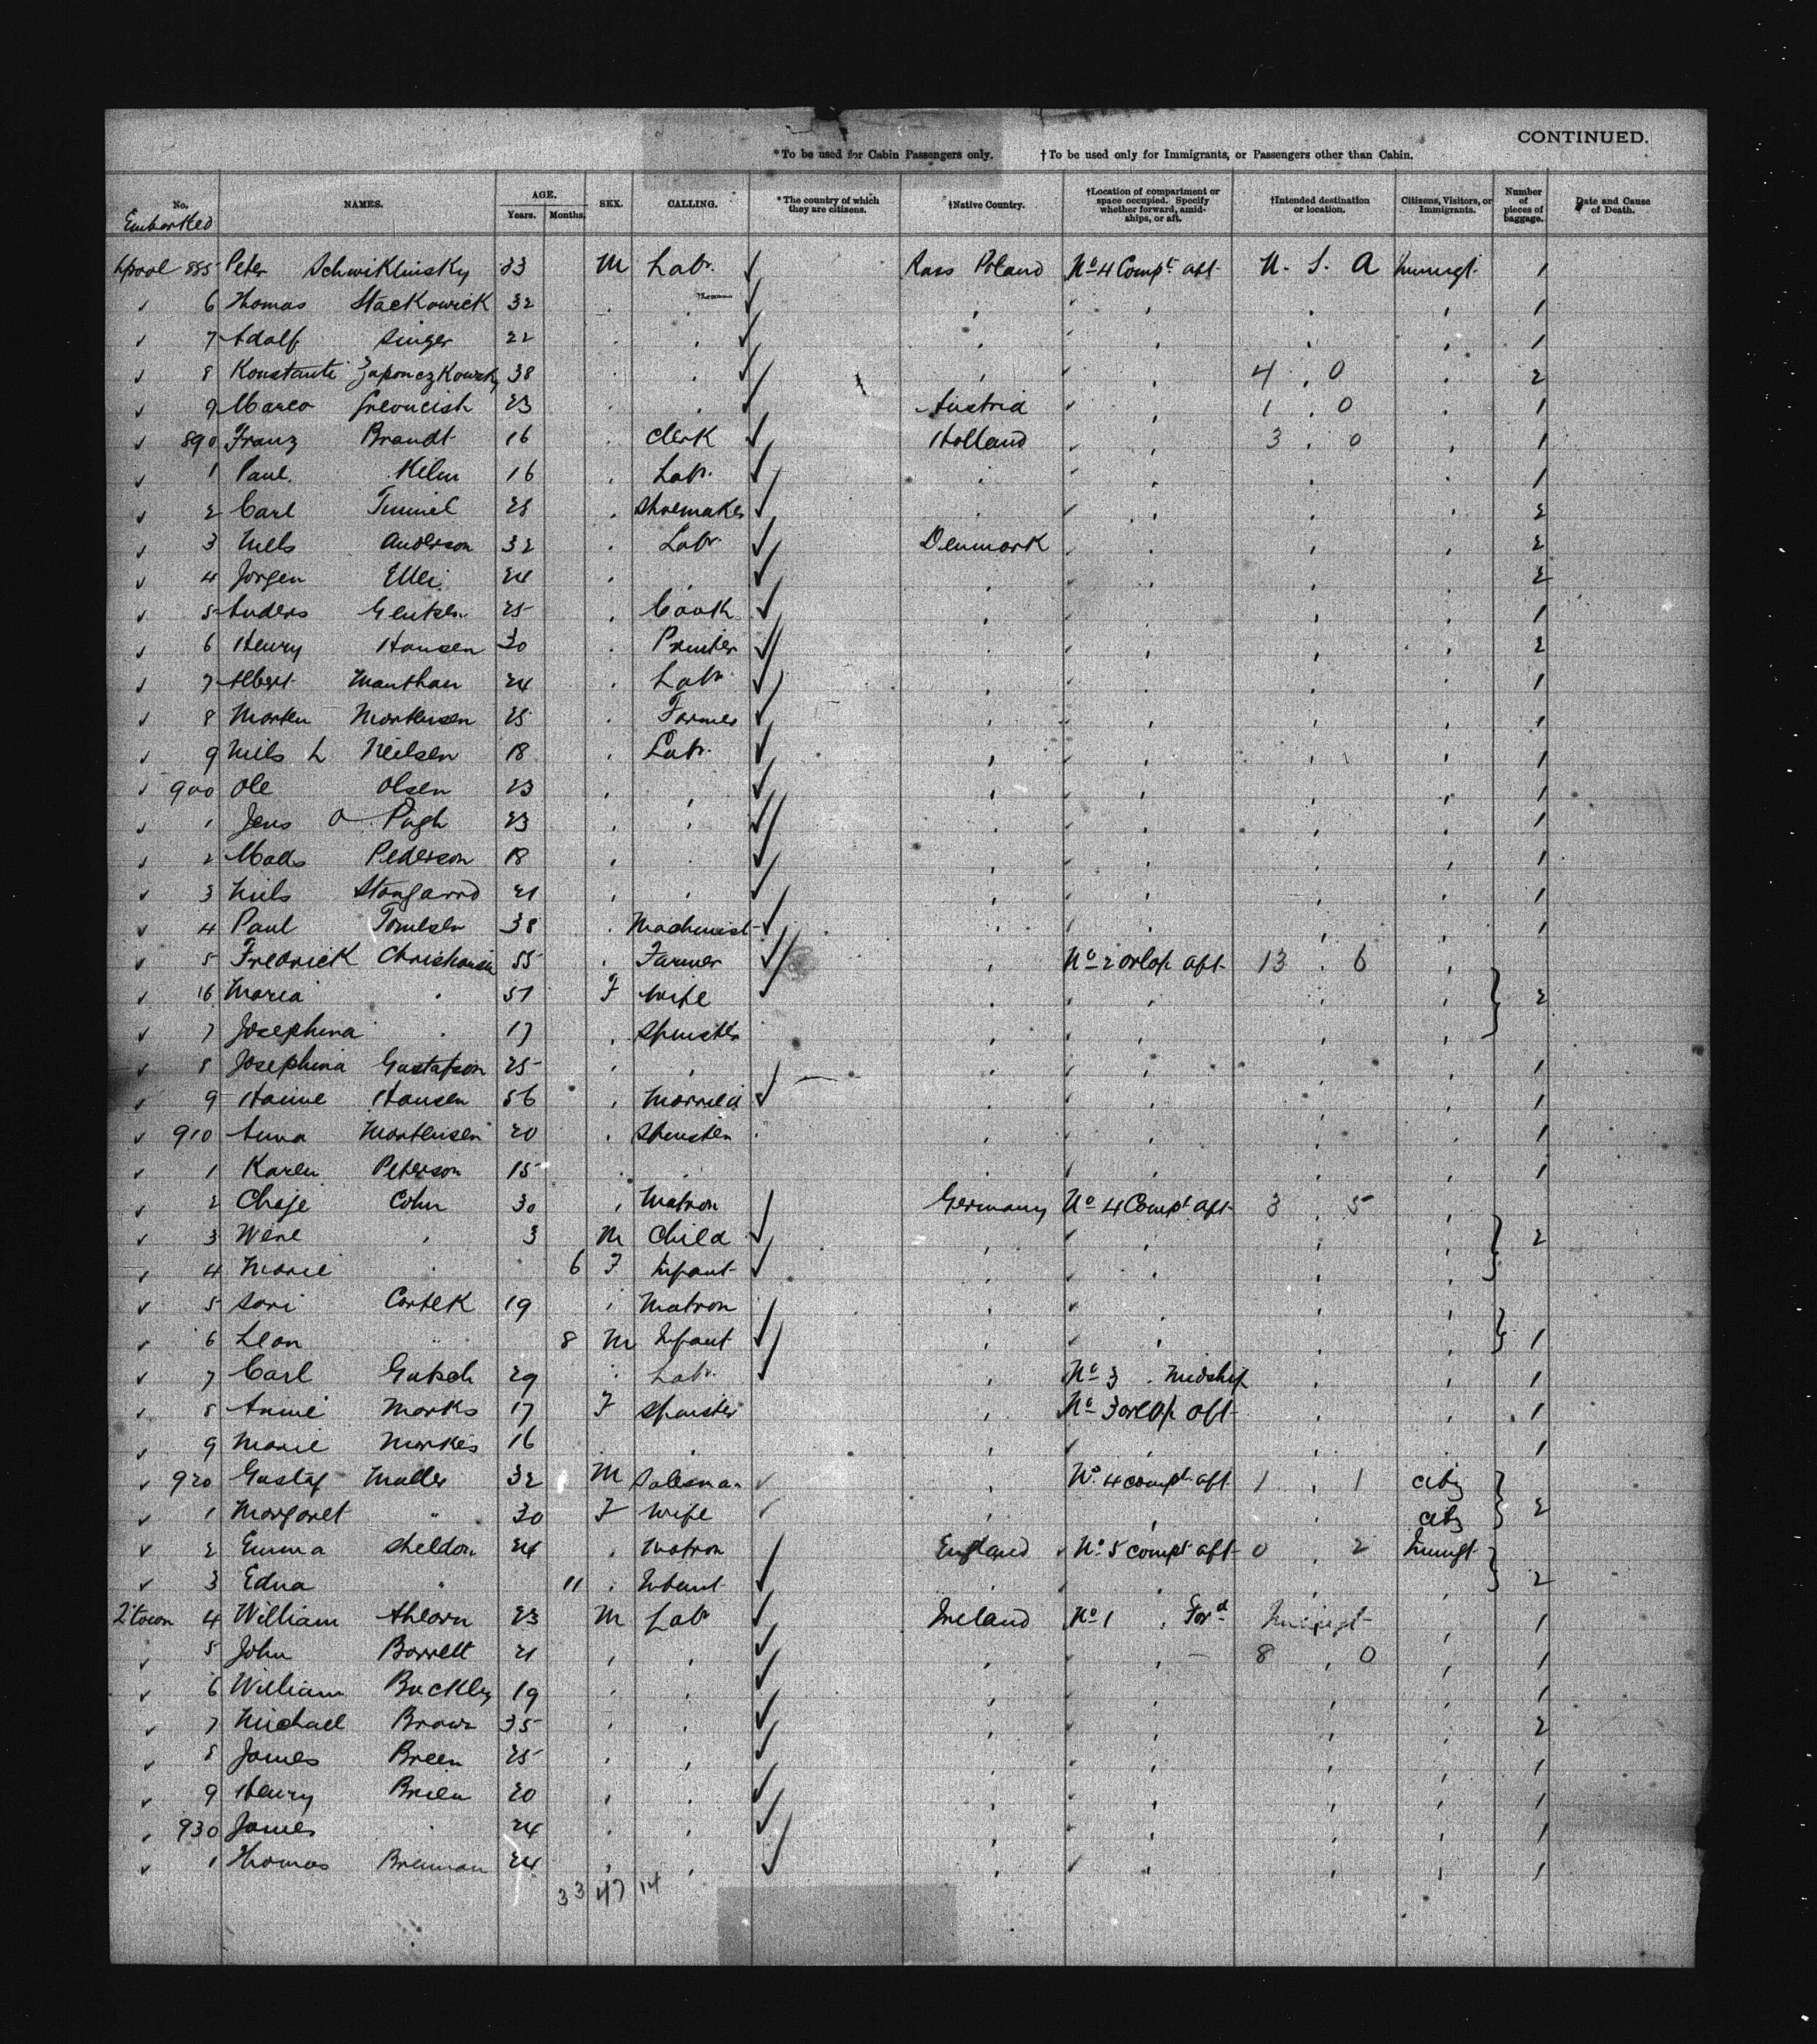 CONTINUED.
*To be used for Cabin Passengers only. †To be used only for Immigrants, or Passengers other than Cabin.
No. NAMES. AGE. Years. Months. SEX. CALLING. *The country of which they are citizens. †Native Country. †Location of compartment or space occupied. Specify whether forward, amidships, or aft. †Intended destination or location. Citizens, Visitors, or Immigrants. Number of pieces of baggage. Date and Cause of Death.
Embarked
Lpool 885 Peter Schwiklinsky 33 M Labr. ✓ Russ Poland No 4 Compt aft U. S. A Immigt 1
✓ 6 Thomas Stackowick 32 ✓ 1
✓ 7 Adolf Singer 22 ✓ 1
✓ 8 Konstanti Zaponczkowsky 38 ✓ 4 . 0 2
✓ 9 Marco 23 ✓ Austria 1 . 0 1
✓ 890 Franz Brandt 16 Clerk ✓ Holland 3 . 0 1
✓ 1 Paul Kilm 16 Labr. ✓ 1
✓ 2 Carl 28 Shoemaker ✓ 2
✓ 3 Nells Anderson 32 Labr. ✓ Denmark 2
✓ 4 Jorgen Ellei 24 ✓ 2
✓ 5 Anders Gentzen 25 Cook ✓ 1
✓ 6 Henry Hansen 30 Printer ✓ 2
✓ 7 Albert Manthan 24 Labr ✓ 1
✓ 8 Morten Mortensen 25 Farmer ✓ 1
✓ 9 Nils L Neilsen 18 Labr. ✓ 1
✓ 900 Ole Olsen 23 ✓ 1
✓ 1 Jens O Pugh 23 ✓ 1
✓ 2 Mads Pederson 18 ✓ 1
✓ 3 Niels Stangarrd 21 ✓ 1
✓ 4 Paul 38 Machinist ✓ 1
✓ 5 Fredrick Christiansen 55 Farmer ✓ No 2 orlop aft 13 . 6
✓ 16 Maria 51 F Wife ✓ 2
✓ 7 Josephina 17 Spinster
✓ 8 Josephina Gustafson 25 1
✓ 9 Hanne Hansen 56 Married ✓ 1
✓ 910 Anna Mortensen 20 Spinster 1
✓ 1 Karen Peterson 15 1
✓ 2 Chaje Cohn 30 Matron ✓ Germany No 4 Compt aft 3 . 5
✓ 3 Wene 3 M Child ✓ 2
✓ 4 Marie 6 F Infant ✓
✓ 5 Sori Cortek 19 Matron
✓ 6 Leon " 8 M Infant ✓ 1
✓ 7 Carl Gutsch 29 Labr. ✓ No 3 . Midship 1
✓ 8 Annie Marks 17 F Spinster No 3 orlop aft 1
✓ 9 Marie Markes 16 1
✓ 920 Gustaf Muller 32 M Salesman ✓ No. 4 compt aft 1 . 1 citz
✓ 1 Margaret " 30 F Wife ✓ citz 2
✓ 2 Emma Sheldon 24 Matron ✓ England No. 5 compt aft 0 . 2 Immigt
✓ 3 Edna " 11 Infant ✓ 2
Q'town 4 William Ahearn 23 M Labr ✓ Ireland No 1 . Ford Immigt 1
✓ 5 John Barrett 21 ✓ 8 . 0 1
✓ 6 William Buckley 19 ✓ 1
✓ 7 Michael Brown 35 ✓ 2
✓ 8 James Breen 25 ✓ 1
✓ 9 Henry Brien 20 ✓ 1
✓ 930 James 24 ✓ 1
✓ 1 Thomas Brennan 24 ✓ 1
33 47 14